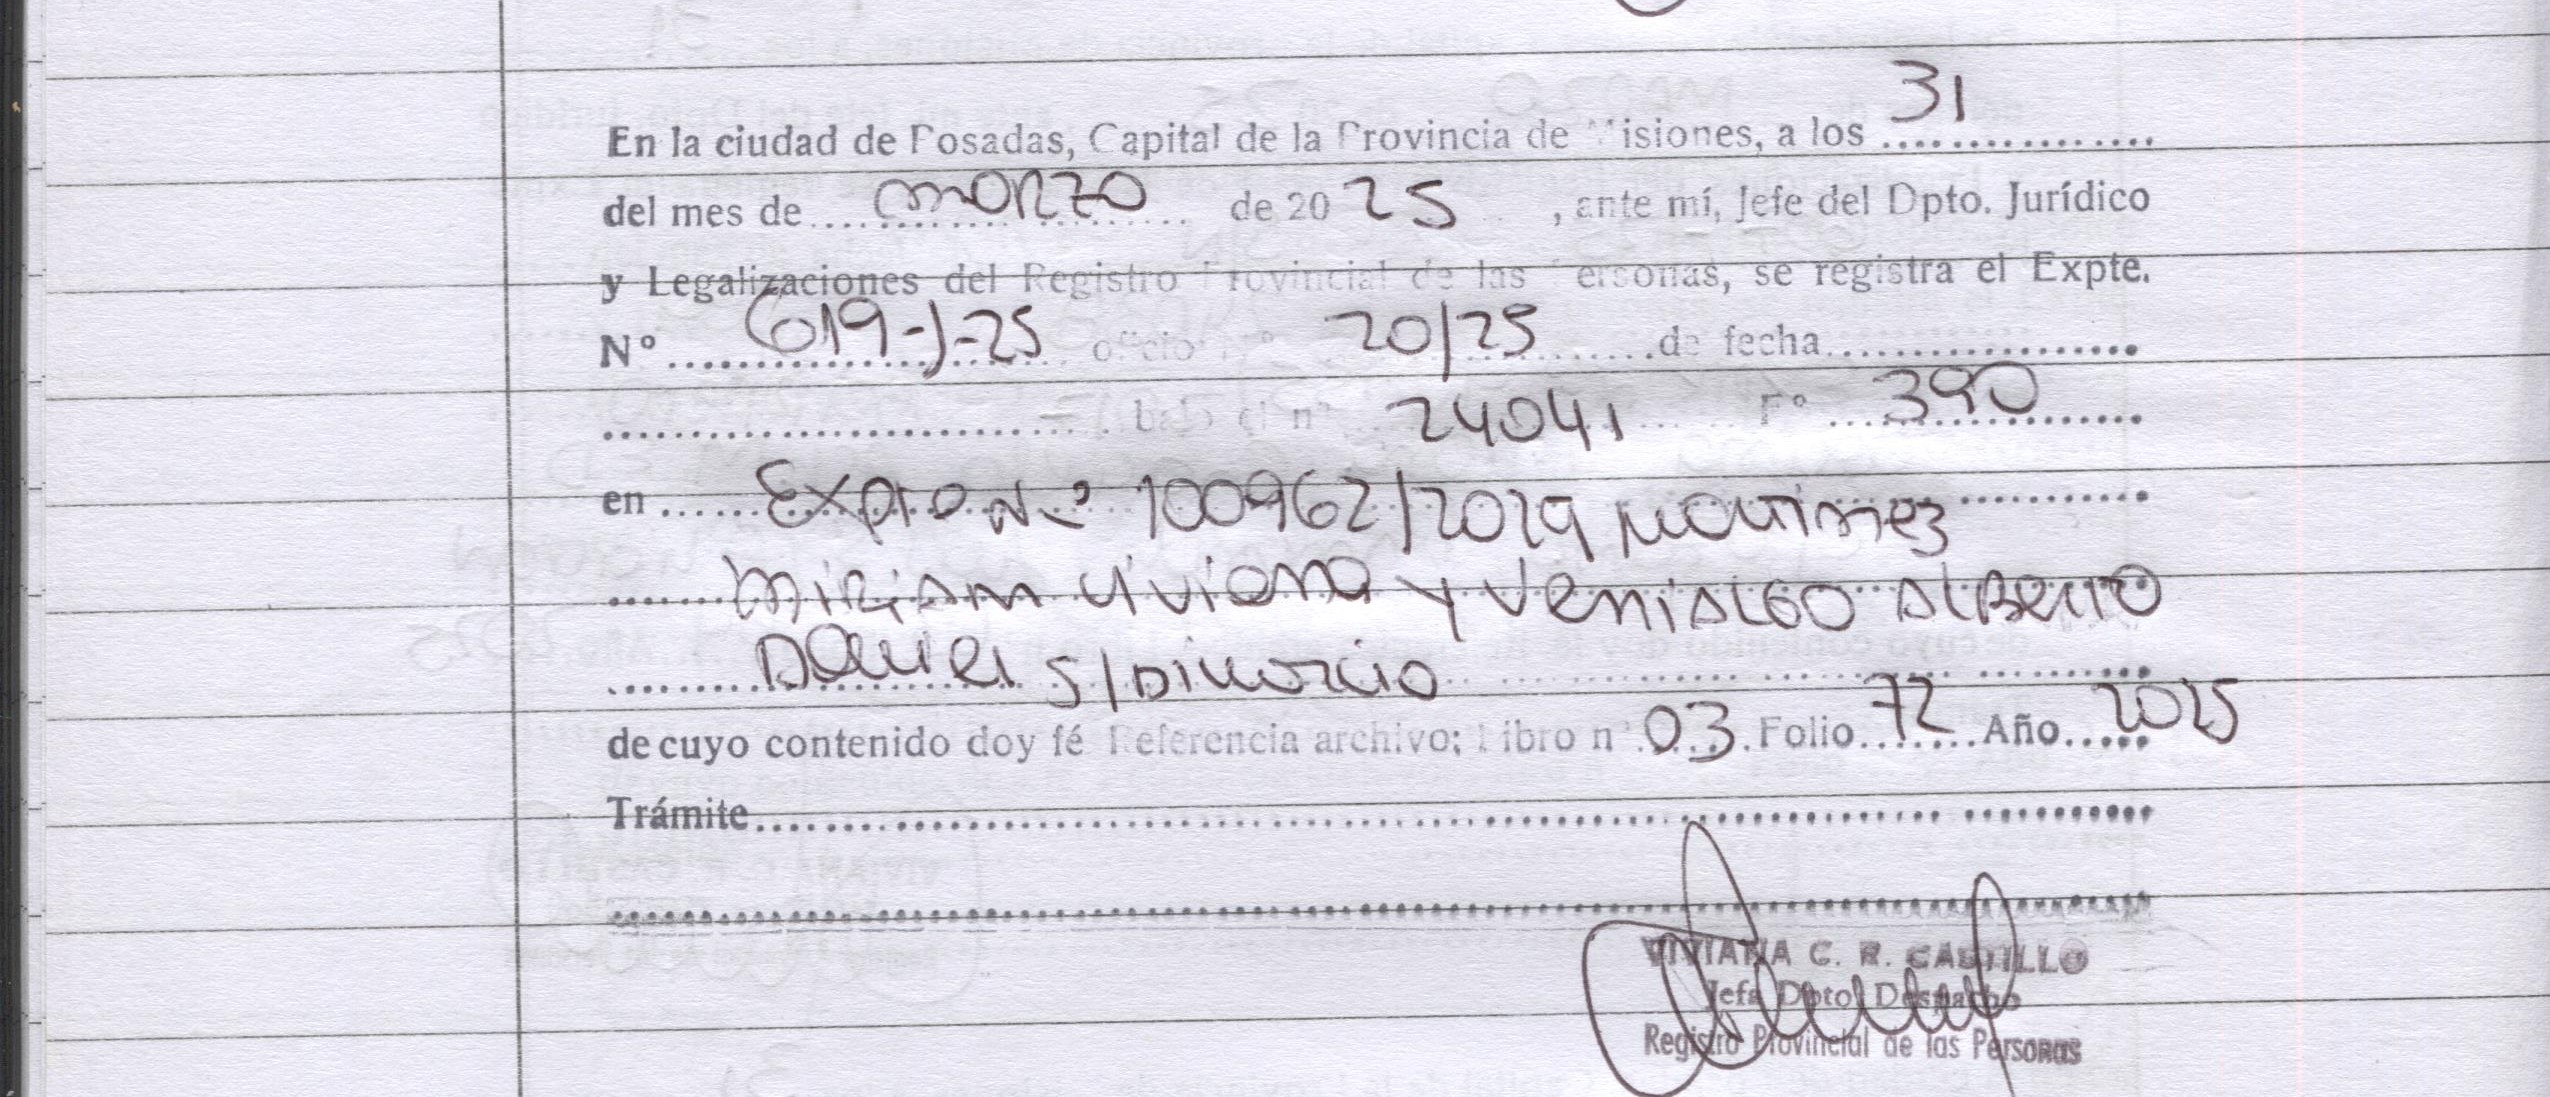 En la ciudad de Posadas, Capital de la Provincia de Misiones, a los 31
del mes de marzo de 2025, ante mí, Jefe del Dpto. Jurídico
y Legalizaciones del Registro Provincial de las Personas, se registra el Expte.
N° 619-J-25 oficio N° 20/25 de fecha
bajo el n° 24041 F° 390
en Expte N° 100962/2029 Martinez
Miriam Viviana y Venialgo Alberto
Daniel S/Divorcio
de cuyo contenido doy fé Referencia archivo; Libro n° 03 Folio 72 Año 2025
Trámite
VIVIANA C. R. CASTILLO
Jefa Dpto. Despacho
Registro Provincial de las Personas